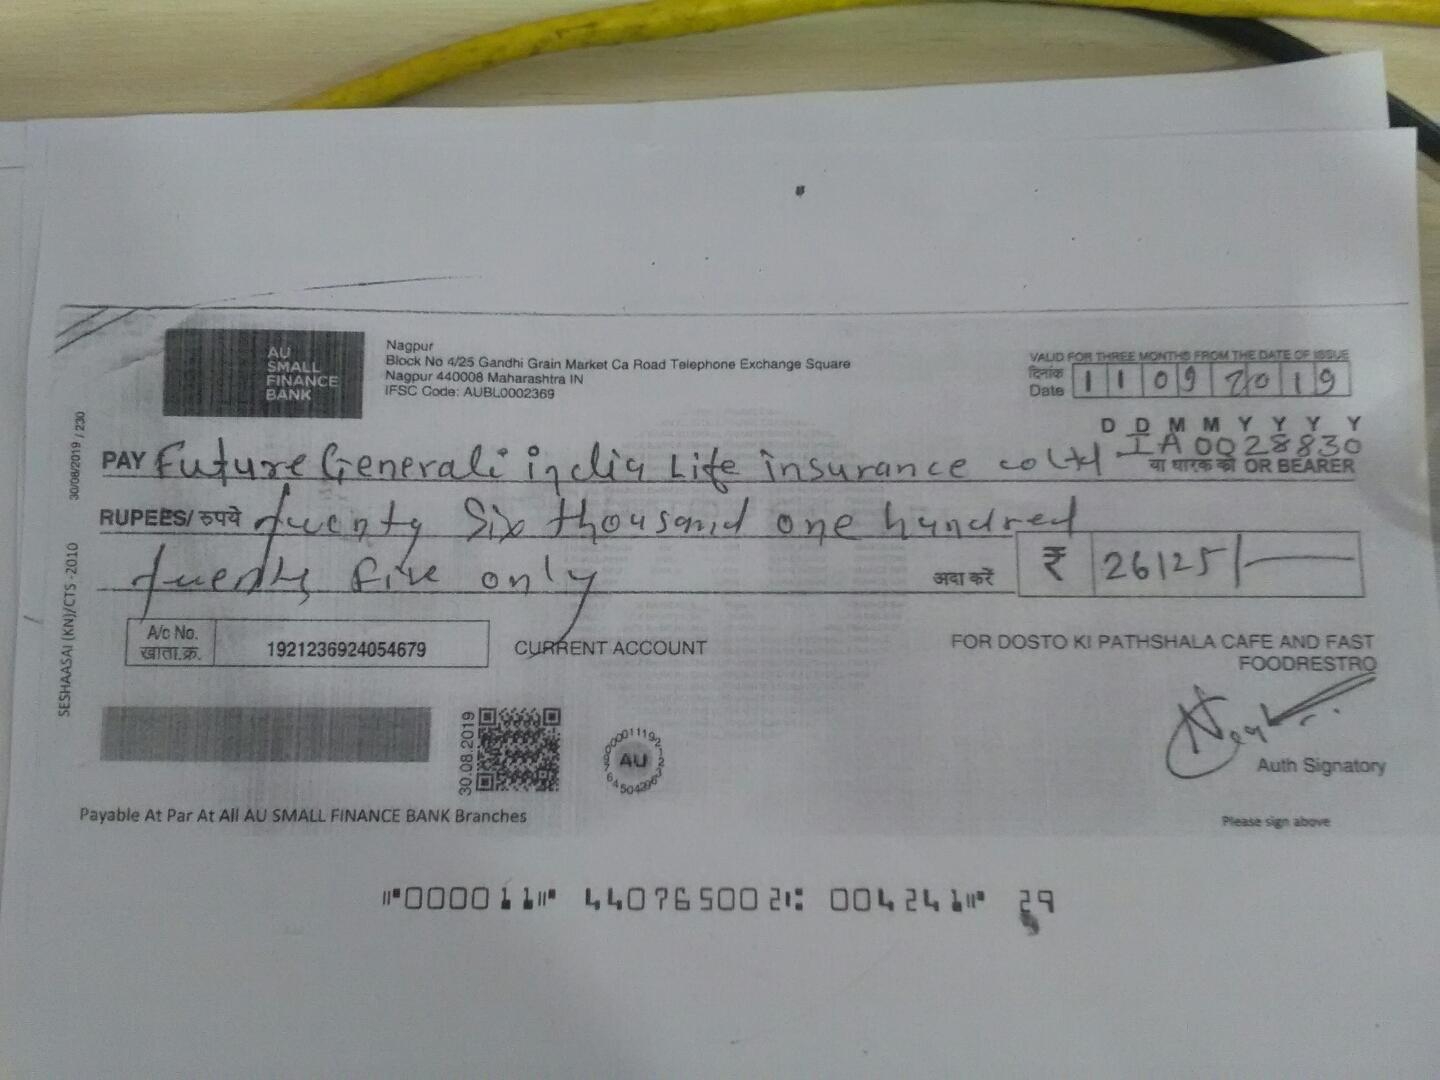 AU
SMALL
FINANCE
BANK
Nagpur
Block No 4/25 Gandhi Grain Market Ca Road Telephone Exchange Square
Nagpur 440008 Maharashtra IN
IFSC Code: AUBL0002369
VALID FOR THREE MONTHS FROM THE DATE OF ISSUE
दिनांक
Date 11092019
D D M M Y Y Y Y
PAY Future Generali india Life insurance co Ltd IA0028830
या धारक को OR BEARER
RUPEES/ रुपये twenty Six thousand one hundred
twenty five only अदा करें ₹ 26125/-
A/c No.
खाता.क्र. 1921236924054679 CURRENT ACCOUNT
FOR DOSTO KI PATHSHALA CAFE AND FAST
FOODRESTRO
30.08.2019
AU
Auth Signatory
Payable At Par At All AU SMALL FINANCE BANK Branches
Please sign above
SESHAASAI (KN)/CTS -2010
30/08/2019 / 230
⑈000011⑈ 440765002⑆ 004241⑈ 29